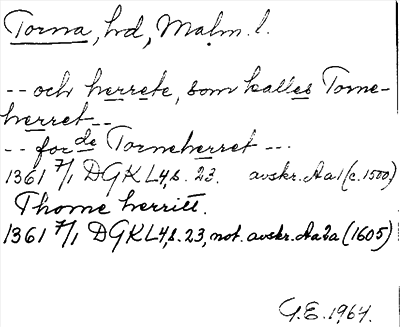 Torna, hd, Malm. l.
-- och herrete, som kalles Torne-
herret --
-- for de Torneherret ---
1361 7/1 DGKL4,s. 23. avskr. Aa1 (c. 1500)
Thorne herritt.
1361 7/1 DGKL4,s. 23, not. avskr. Aa2a (1605)
G.E. 1964.